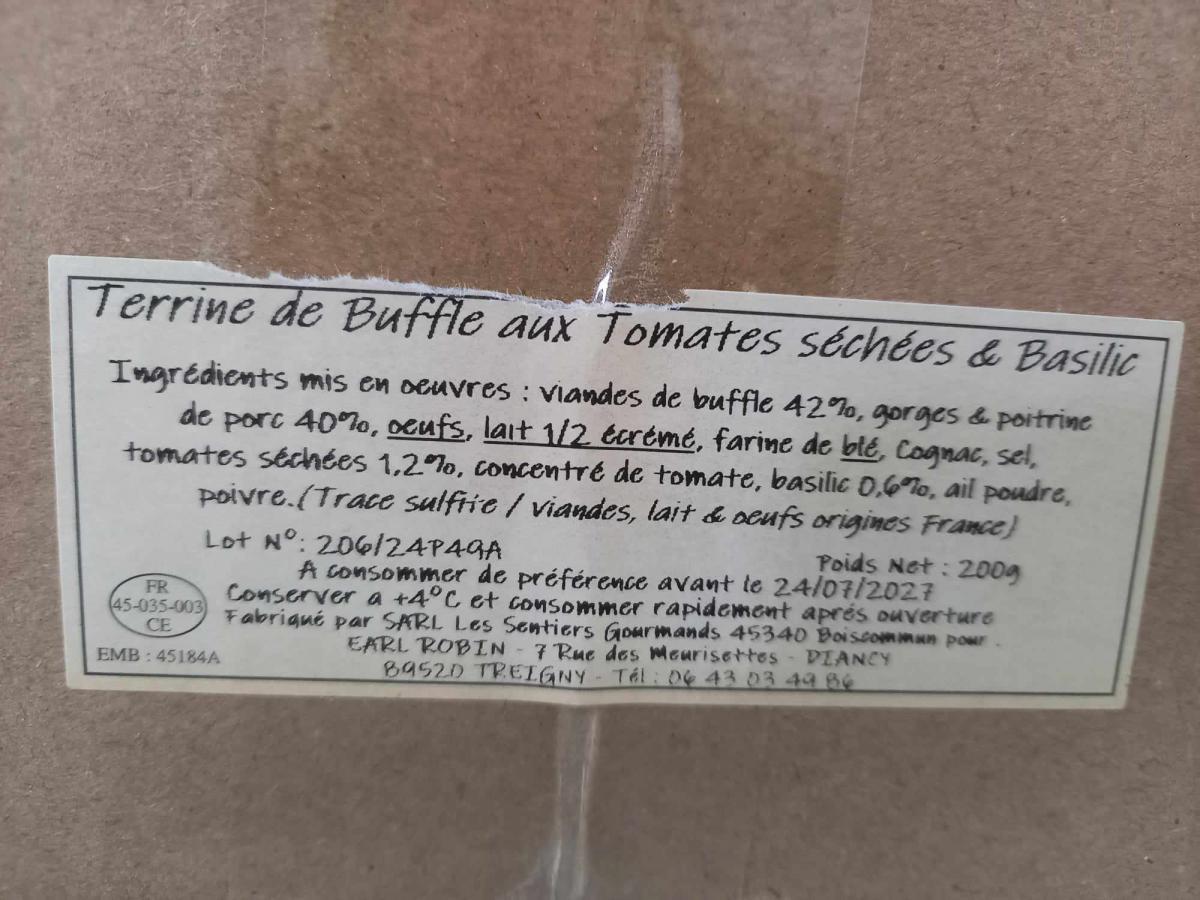 Terrine de Buffle aux Tomates séchées & Basilic
Ingrédients mis en oeuvres : viandes de buffle 42%, gorges & poitrine
de porc 40%, oeufs, lait 1/2 écrémé, farine de blé, Cognac, sel,
tomates séchées 1,2%, concentré de tomate, basilic 0,6%, ail poudre,
poivre.(Trace sulfite / viandes, lait & oeufs origines France)
Lot N°: 206/24P49A
Poids Net : 200g
A consommer de préférence avant le 24/07/2027
Conserver a +4°C et consommer rapidement aprés ouverture
Fabriqué par SARL Les Sentiers Gourmands 45340 Boiscommun pour :
EARL ROBIN - 7 Rue des Meurisettes - DIANCY
89520 TREIGNY - Tél : 06 43 03 49 86
FR
45-035-003
CE
EMB : 45184A